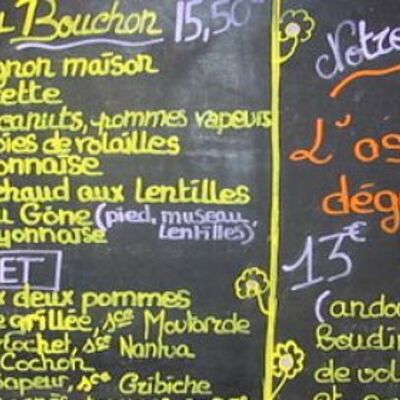 Bouchon 15,50€
gnon maison
ette
canuts, pommes vapeurs
oies de volailles
onnaise
chaud aux lentilles
u Gône (pied, museau,
yonnaise lentilles)
ET
x deux pommes
e grillée, sce Moutarde
rochet, sce Nantua
Cochon
Sapeur, sce Gribiche
Notre
L'os
dég
13€
(ando
Boudin
de vol
et